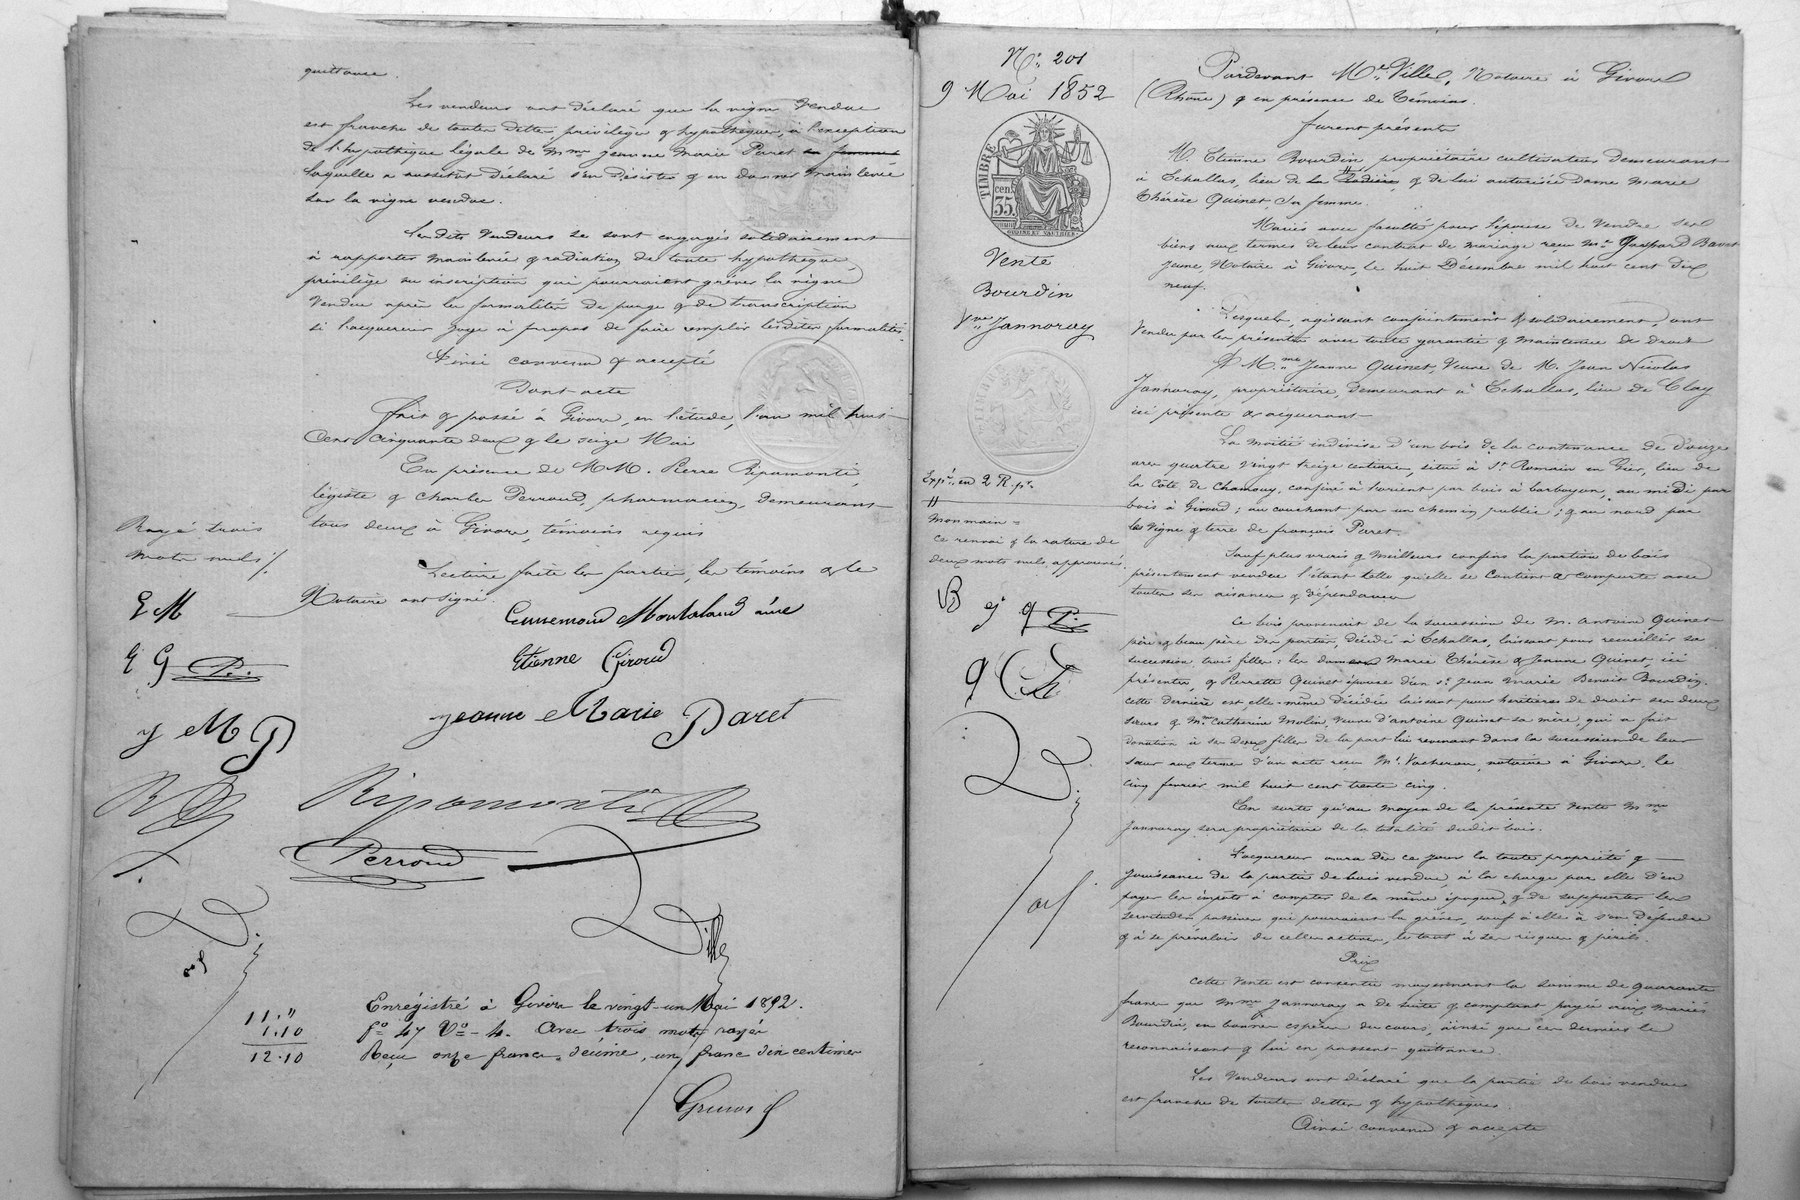 quittance.
Les vendeurs ont déclaré que la vigne vendue
est franche de toutes dettes, privilèges & hypothèques, à l'exception
de l'hypothèque légale de Mme Jeanne Marie Paret sa femme
laquelle a aussitôt déclaré s'en désister & en donner mainlevée
sur la vigne vendue.
Lesdits vendeurs se sont engagés solidairement
à rapporter mainlevée & radiation de toute hypothèque,
privilège ou inscription qui pourraient grever la vigne
vendue après les formalités de purge & de transcription
si l'acquéreur juge à propos de faire remplir lesdites formalités.
Ainsi convenu & accepté
Dont acte
fait & passé à Givors, en l'étude, l'an mil huit
cent cinquante deux & le seize Mai
En présence de MM. Pierre Ripamonti,
légiste & Charles Perroud, pharmacien, demeurans
tous deux à Givors, témoins requis
Lecture faite les parties, les témoins & le
Notaire ont signé.
Rayé trois
mots nuls ./.
E M
E G P.
J M P
Montaland aîné
Etienne Giroud
Jeanne Marie Paret
Ripamonti
Perroud
Ville
Enregistré à Givors le vingt-un Mai 1852.
fo 47 Vo - 4. Avec trois mots rayés
Reçu onze francs, décime, un franc dix centimes
11. "
1.10
12.10
No 201
9 Mai 1852
TIMBRE
35 cen.
Vente
Bourdin
Vve Jannoray
Expn. en 2 R. pr.
Mon main =
ce renvoi & la rature de
deux mots nuls approuvés
Pardevant Me Ville, Notaire à Givors
(Rhône) & en présence de témoins.
furent présents
M. Etienne Bourdin, propriétaire cultivateur demeurant
à Echallas, lieu de la Rodière, & de lui autorisée Dame Marie
Thérèse Quinet, sa femme.
Mariés avec faculté pour l'épouse de vendre ses
biens aux termes de leur contrat de mariage reçu Me Gaspard
jeune, Notaire à Givors, le huit Décembre mil huit cent dix
neuf.
Lesquels, agissant conjointement & solidairement, ont
vendu par les présentes avec toute garantie & maintenue de droit
A Mme Jeanne Quinet, Veuve de M. Jean Nicolas
Jannoray, propriétaire, demeurant à Echallas, lieu de Clay
ici présente & acquérant
La moitié indivise d'un bois de la contenance de douze
ares quatre vingt treize centiares, situé à St Romain en Gier, lieu de
la Côte de Chamouy, confiné à l'orient par bois à Carboyon; au midi par
bois à Giroud; au couchant par un chemin public; & au nord par
les vigne & terre de françois Paret.
Sauf plus vrais & meilleurs confins la portion de bois
présentement vendue l'étant telle qu'elle se contient & comporte avec
toutes ses aisances & dépendances
Ce bois provenait de la succession de M. Antoine Quinet
père & beau père des parties, décédé à Echallas, laissant pour recueillir sa
succession trois filles: les dames Marie Thérèse & Jeanne Quinet, ici
présentes, & Pierrette Quinet épouse d'un sr Jean Marie Benoit Bourdin.
cette dernière est elle-même décédée laissant pour héritières de droit ses deux
sœurs & Me Catherine Molin, veuve d'Antoine Quinet sa mère, qui a fait
donation à ses deux filles de la part lui revenant dans la succession de leur
sœur aux termes d'un acte reçu Me Vacheron, notaire à Givors, le
cinq février mil huit cent trente cinq.
En sorte qu'au moyen de la présente vente Mme
Jannoray sera propriétaire de la totalité dudit bois.
L'acquéreur aura dès ce jour la toute propriété &
jouissance de la partie de bois vendue, à la charge par elle d'en
payer les impôts à compter de la même époque, & de supporter les
servitudes passives qui pourraient la grever, sauf à elle à s'en défendre
& à se prévaloir de celles actives, le tout à ses risques & périls.
Prix
Cette vente est consentie moyennant la somme de quarante
francs que Mme Jannoray a de suite & comptant payée aux mariés
Bourdin, en bonnes espèces du cours, ainsi que ces derniers le
reconnaissent & lui en passent quittance.
Les vendeurs ont déclaré que la partie de bois vendue
est franche de toutes dettes & hypothèques.
Ainsi convenu & accepté